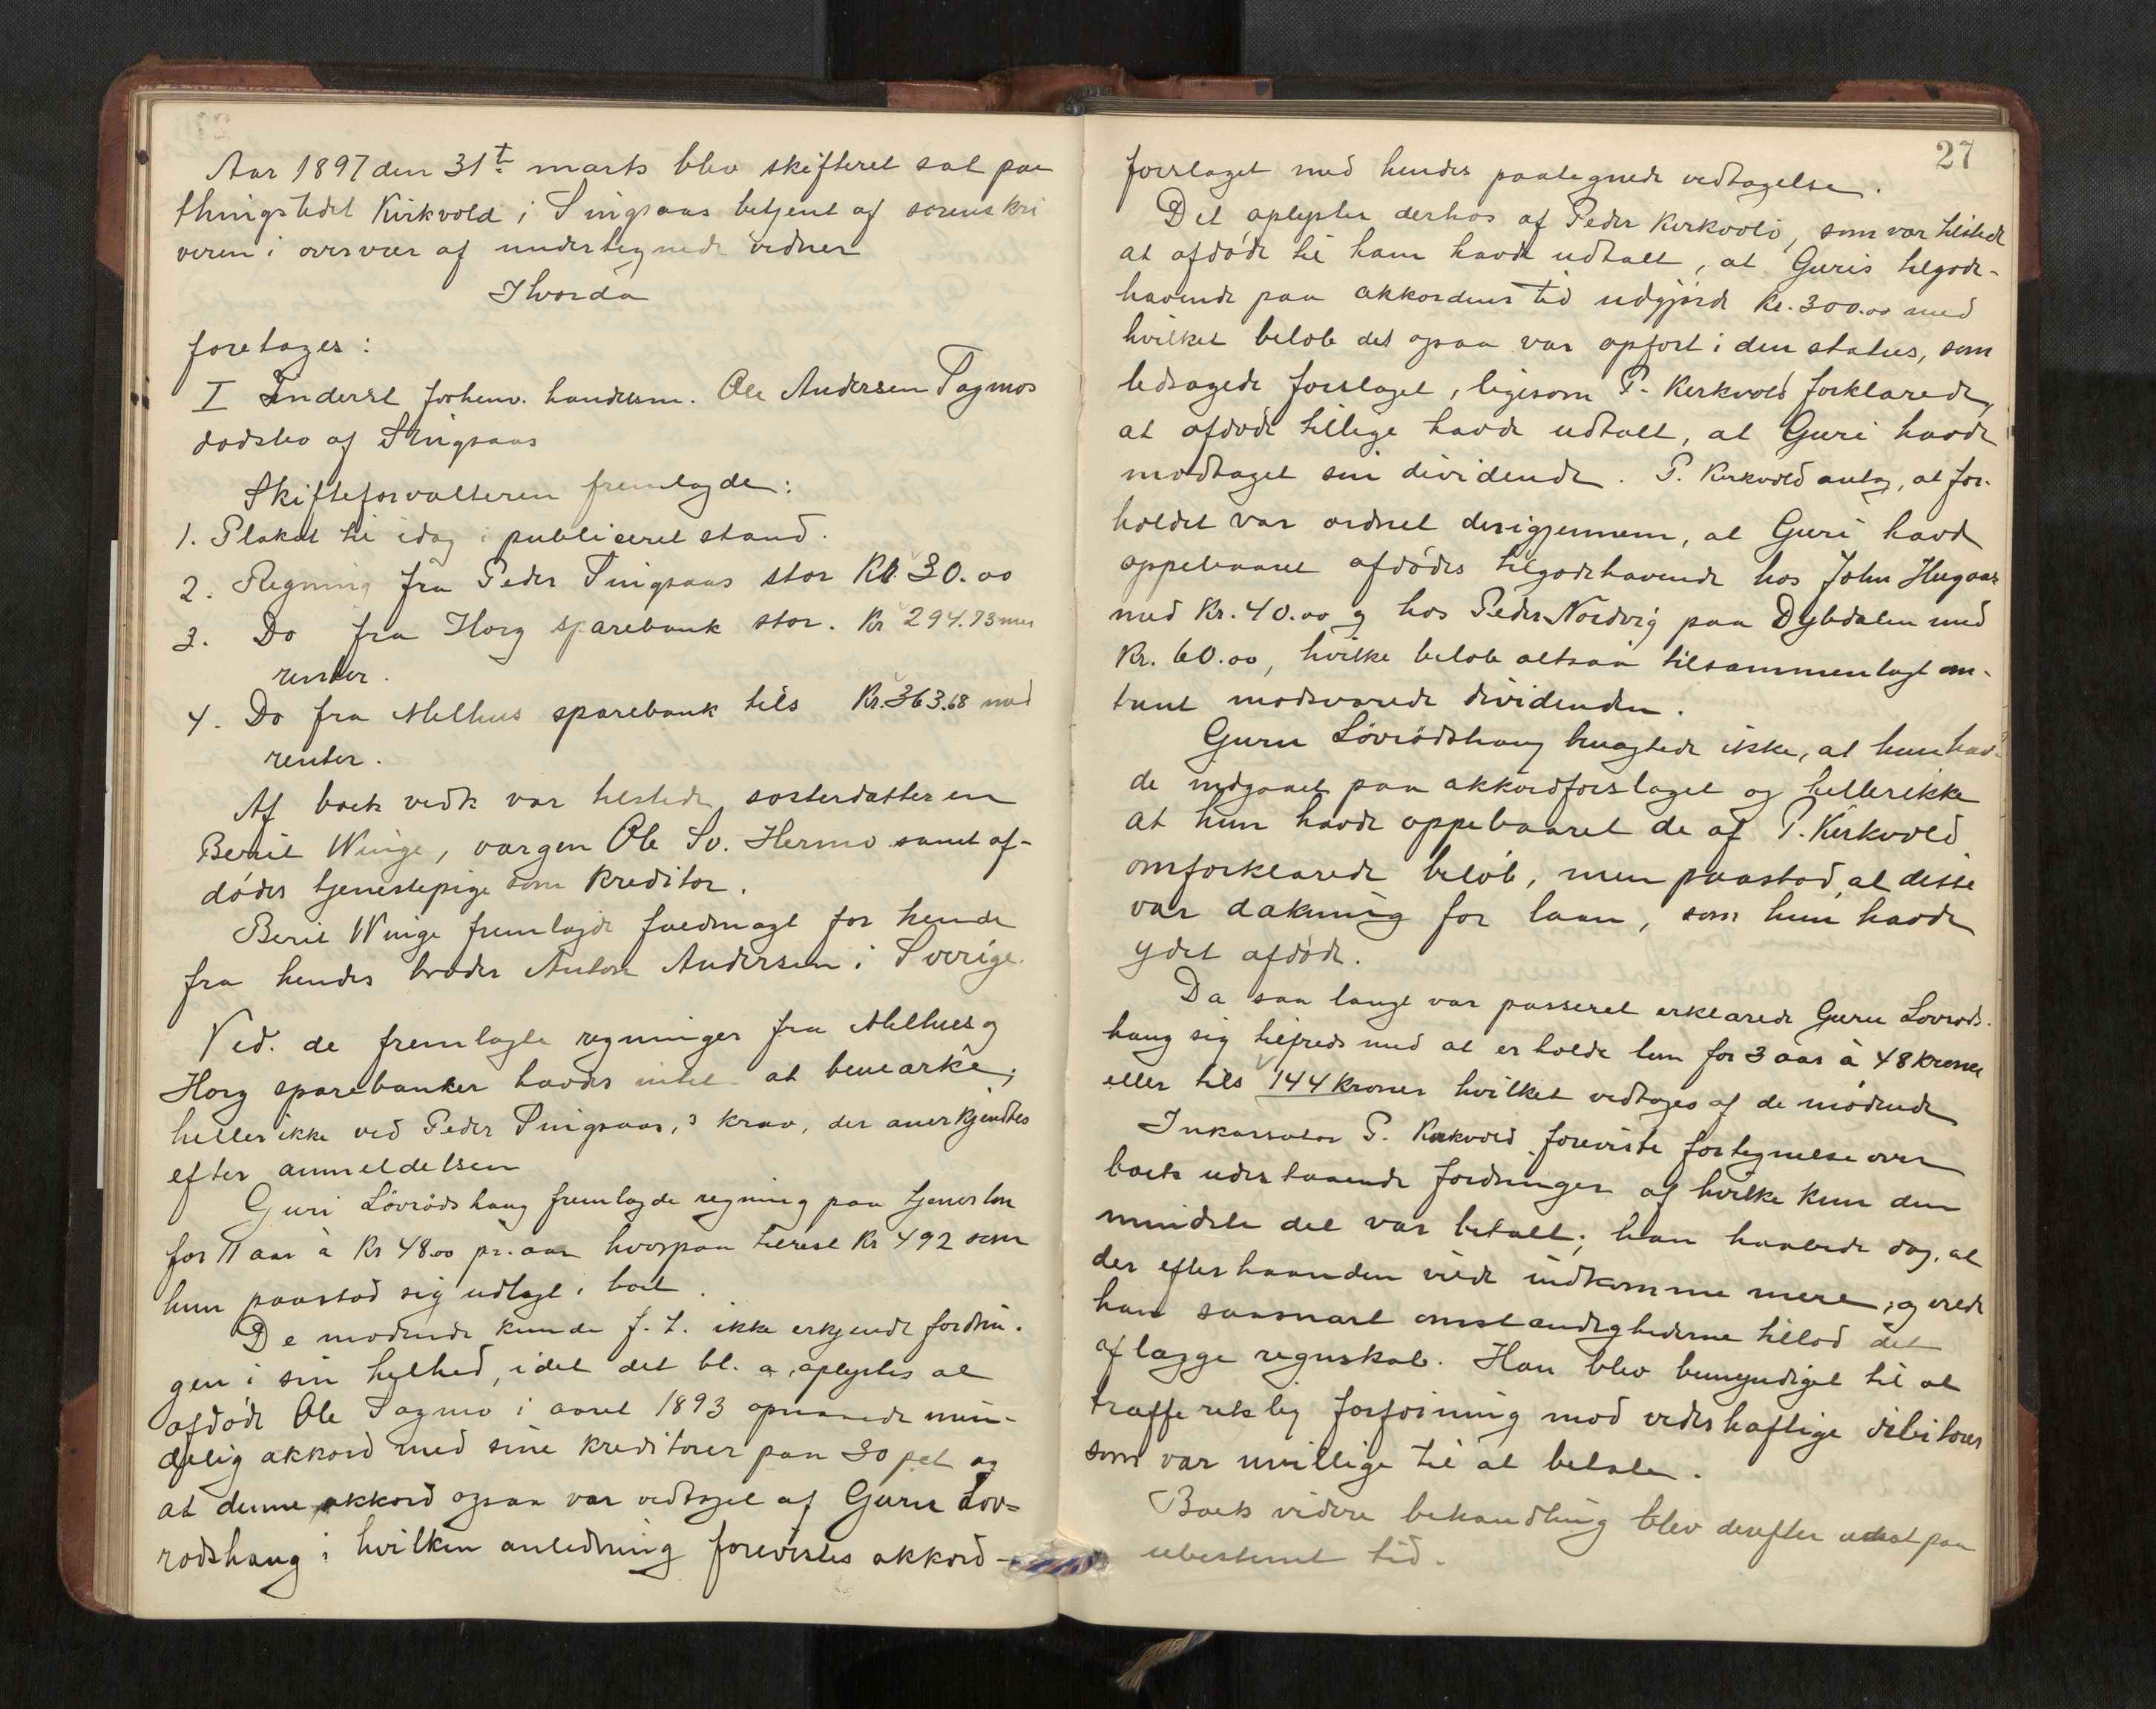 Aar 1897 den 31t marts blev skifteret sat paa
thingstedet Kirkvold i Singsaas betjent af sorenskri
veren i overvær af undertegnede vidner
Hvorda
foretages:
I Inderst forhenv. handelsm. Ole Andersen Tagmos
dødsbo af Singsaas
Skifteforvalteren fremlagde:
1. Plakat til idag i publiceret stand.
2. Regning fra Peder Singsaas stor Kr. 30.00
3. Do fra Horg sparebank stor. Kr 294.73 med
renter.
4. Do fra Melhus sparebank tils Kr. 363.68 med
renter.
Af boets vedk var tilstede søsterdatteren
Berit Winge, værgen Ole Sv. Hermo samt af-
dødes tjenestepige som kreditor.
Berit Winge fremlagde fuldmagt for hende
fra hendes broder Anton Andersen i Sverige.
Ved. de fremlagte regninger fra Melhus og
Horg sparebanker havdes intet at bemærke;
heller ikke ved Peder Singsaas,s krav, der anerkjendtes
efter anmeldelsen
Guri Lövrödshaug fremlagde regning paa tjenerløn
for 11 aar à Kr 48.00 pr. aar hvorpaa tilrest Kr 492 som
hun paastod sig udlagt i boet.
De mødende kunde f. t. ikke erkjende fordrin-
gen i sin helhed, idet det bl. a. oplystes at
afdøde Ole Tagmo i aaret 1893 opnaaede min-
delig akkord med sine kreditorer paa 20 pct og
at denne akkord ogsaa var vedtaget af Guru Lov-
rodshaug i hvilken anledning forevistes akkord-
27
forslaget med hendes paategnede vedtagelse.
Det oplystes derhos af Peder Kirkvold, som var tilstede
at afdøde til ham havde udtalt, at Guris tilgode-
havende paa akkordens tid udgjorde Kr. 300.00 med
hvilket beløb det ogsaa var opført i den status, som
ledsagede forslaget, ligesom P. Kirkvold forklarede,
at afdøde tillige havde udtalt, at Guri havde
modtaget sin dividende. P. Kirkvold antog, at for-
holdet var ordnet derigjennem, at Guri havde
oppebaaret afdødes tilgodehavende hos John Hugaas
med Kr. 40.00 og hos Peder Nordvig paa Dybdalen med
Kr. 60.00, hvilke beløb altsaa tilsammenlagt om-
trent modsvarede dividenden.
Guru Lövrödshaug benægtede ikke, at hun hav-
de indgaaet paa akkordforslaget og heller ikke
at hun havde oppebaaret de af P. Kirkvold
omforklarede beløb, men paastod, at disse
var dækning for laan, som hun havde
ydet afdøde.
Da saa langt var passeret erklærede Guru Lovrods-
haug sig tilfreds med at erholde løn for 3 aar à 48 kroner
eller tils 144 kroner hvilket vedtoges af de mødende
Inkassator P. Kirkvold foreviste fortegnelse over
boets udestaaende fordringer af hvilke kun den
mindste del var betalt; han haabede dog, at
der efterhaanden vilde indkomme mere, og vilde
han saasnart omstændighederne tillod det
aflægge regnskab. Han blev bemyndiget til at
træffe retslig forføining mod vederhæftige debitorer
som var uvillige til at betale.
Boets videre behandling blev derefter udsat paa
ubestemt tid.